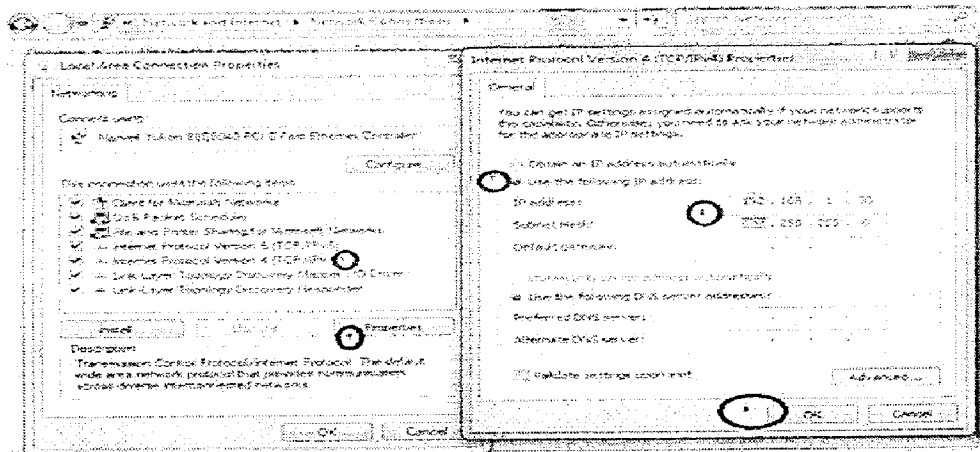 Network and Internet ▸ Network Connections ▸
Local Area Connection Properties
Networking
Connect using:
Marvell Yukon PCI-E Fast Ethernet Controller
Configure...
This connection uses the following items:
Client for Microsoft Networks
QoS Packet Scheduler
File and Printer Sharing for Microsoft Networks
Internet Protocol Version 6 (TCP/IPv6)
Internet Protocol Version 4 (TCP/IPv
Link-Layer Topology Discovery Mapper I/O Driver
Link-Layer Topology Discovery Responder
Install...
Properties
Description
Transmission Control Protocol/Internet Protocol. The default
wide area network protocol that provides communication
across diverse interconnected networks.
OK
Cancel
Internet Protocol Version 4 (TCP/IPv4) Properties
General
You can get IP settings assigned automatically if your network supports
this capability. Otherwise, you need to ask your network administrator
for the appropriate IP settings.
Obtain an IP address automatically
Use the following IP address:
IP address:
192 . 168 . 1 .
Subnet mask:
255 . 255 . 255 . 0
Default gateway:
Use the following DNS server addresses:
Preferred DNS server:
Alternate DNS server:
Validate settings upon exit
Advanced...
OK
Cancel